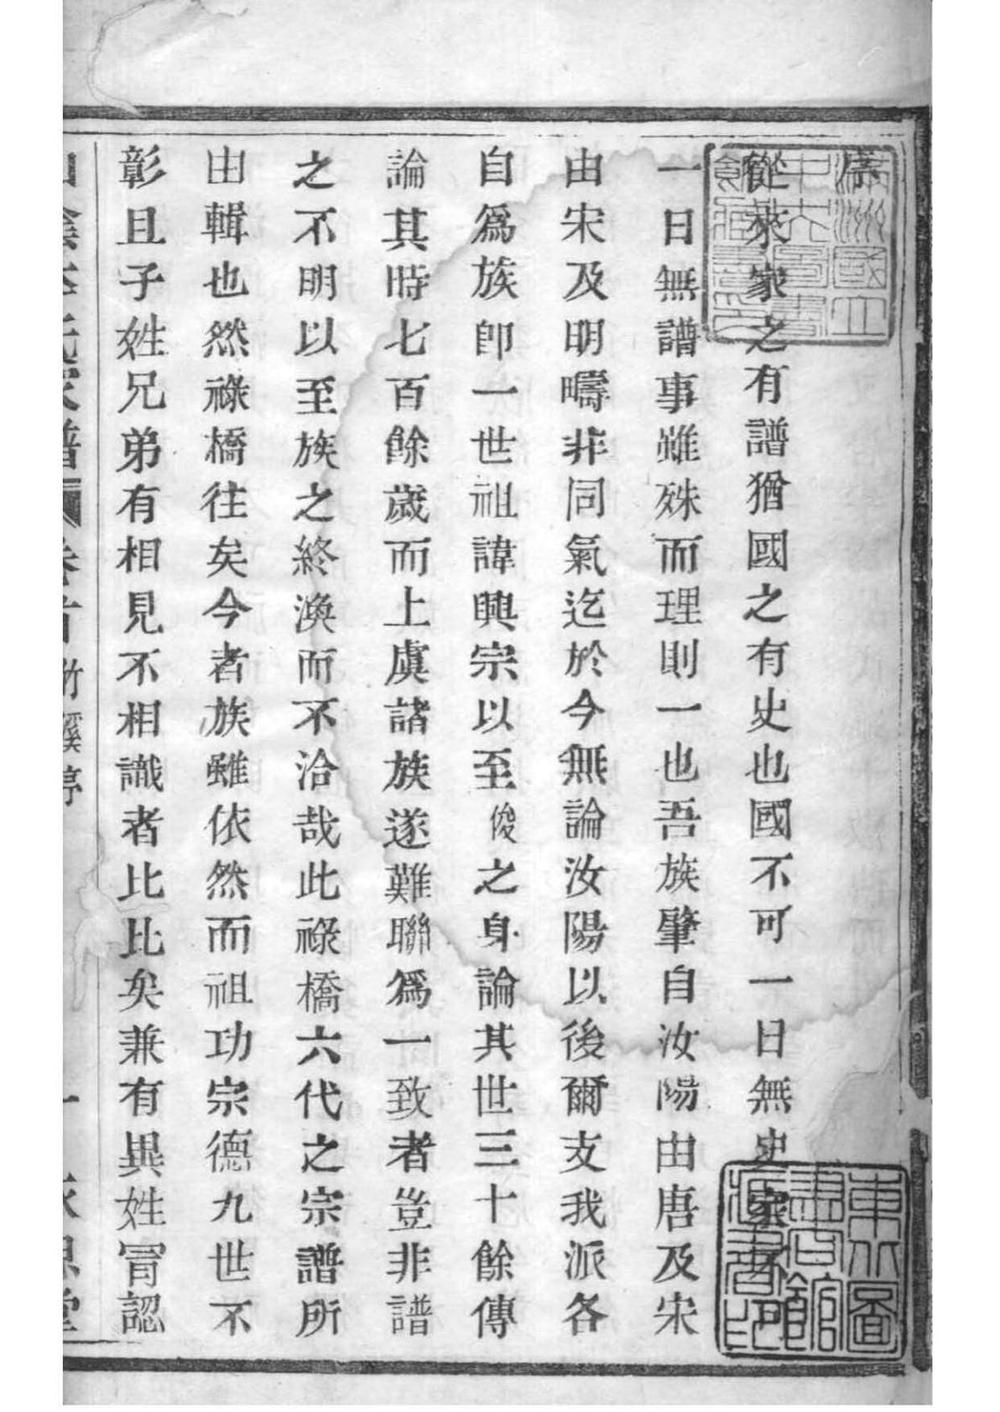 序
從來家之有譜猶國之有史也國不可一日無史家不可
一日無譜事雖殊而理則一也吾族肇自汝陽由唐及宋
由宋及明疇非同氣迄於今無論汝陽以後爾支我派各
自爲族卽一世祖諱興宗以至俊之身論其世三十餘傳
論其時七百餘歲而上虞諸族遂難聯爲一致者豈非譜
之不明以至族之終渙而不洽哉此祿橋六代之宗譜所
由輯也然祿橋往矣今者族雖依然而祖功宗德九世不
彰且子姓兄弟有相見不相識者比比矣兼有異姓冐認
滿洲國立中央圖書館籌備處之印
東北圖書館藏書印